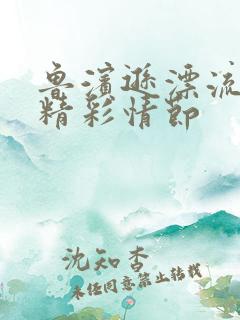 鲁滨逊漂流
精彩情节
沈知杏
未经同意禁止转载